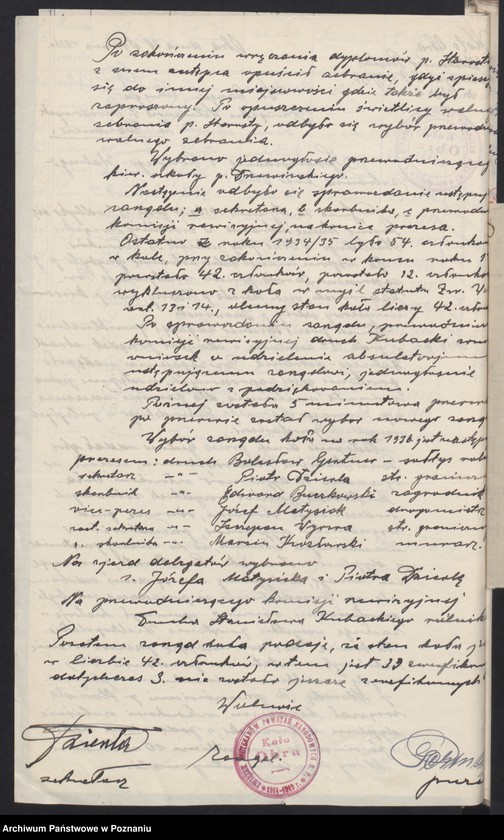 Po zakończeniu wręczania dyplomów p. Starosta
z swem zastępcą opuścił zebranie, gdyż spieszy
się do innej miejscowości gdzie także był
zaproszony. Po opuszczeniu świetlicy walnego
zebrania p. Starosty, odbyło się wybór przewodn
walnego zebrania.
Wybrano jednogłośnie przewodniczącego
kier. szkoły p.
Następnie odbyło się sprawozdanie ustępuj
zarządu; a sekretarza, b skarbnika, c przewodn
komisji rewizyjnej, nakoniec prezesa.
Ostatnio z roku 1934/35 było 54. członków
w kole, przy zakończeniu w końcu roku 1
pozostało 42. członków, pozostało 12. członków
wykluczono z koła w myśl statutu Zw.
art. 13 i 14., obecny stan koła liczy 42. człon
Po sprawozdaniu zarządu, przewodnicz
komisji rewizyjnej druh Kubacki
wniosek o udzielenie absolutorjum
ustępującemu zarządowi, jednogłośnie
udzielono z podziękowaniem.
Później została 5 minutowa przerwa
po przerwie został wybór nowego zarząd
Wybór zarządu koła na rok 1936 jest następ
prezesem: druch Bolesław Gertner – sołtys
sekretarz -"- Piotr Dzienla str. graniczn
skarbnik -"- Edward Buczkowski zagrodnik
vice-prezes -"- Józef Matysiak drogomistrz
zast. sekretarza -"- Szczepan Wyrwa str. graniczn
z. skarbnika -"- Marcin Kozłowski murarz.
Na zjazd delegatów wybrano
1. Józefa Matysiaka i Piotra Dzienlę
Na przewodniczącego komisji rewizyjnej
Druha Stanisława Kubackiego rolnik
Pozatem zarząd koła podaje, że stan koła
w liczbie 42. członków, w tem jest 39 zweryfikow
dotychczas 3. nie zostało jeszcze zweryfikowanych
Dzienla
sekretarz
Koło
Obra
1914-1919
Gertner
prezes
Archiwum Państwowe w Poznaniu